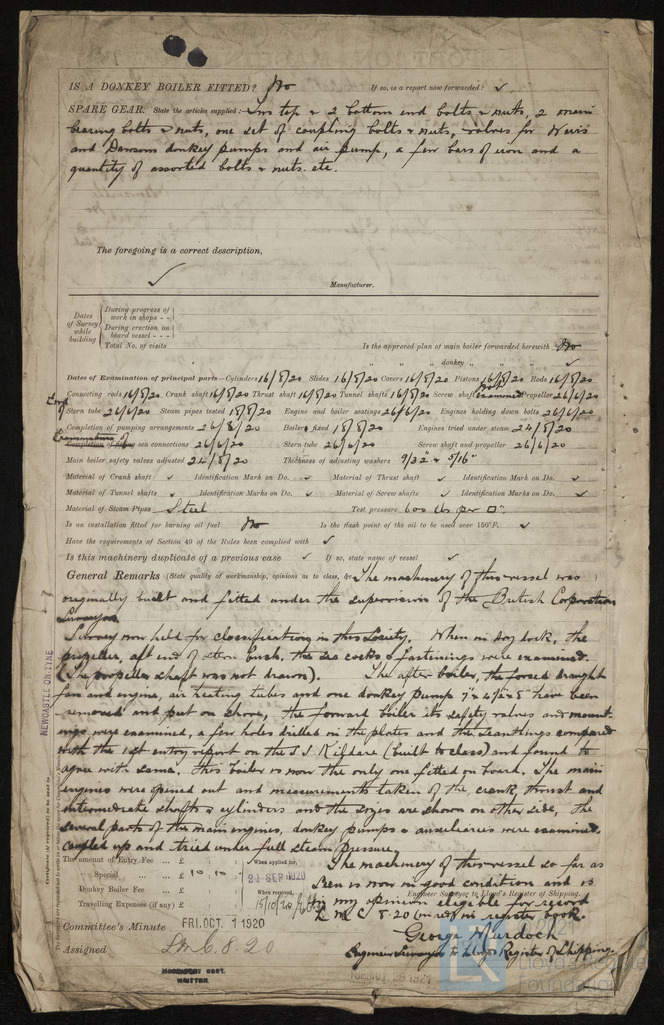 IS A DONKEY BOILER FITTED? No If so, is a report now forwarded? ✓
SPARE GEAR. State the articles supplied:— Two top & 2 bottom end bolts & nuts, 2 main
bearing bolts & nuts, one set of coupling bolts & nuts, valves for Weirs
and Dawsons donkey pumps and air pump, a few bars of iron and a
quantity of assorted bolts & nuts. etc.
The foregoing is a correct description,
✓ Manufacturer.
Dates of Survey while building
During progress of work in shops - -
During erection on board vessel - - -
Total No. of visits
Is the approved plan of main boiler forwarded herewith No
" " " donkey " " " ✓
Dates of Examination of principal parts—Cylinders 16/8/20 Slides 16/8/20 Covers 16/8/20 Pistons 16/8/20 Rods 16/8/20
Connecting rods 16/8/20 Crank shaft 16/8/20 Thrust shaft 16/8/20 Tunnel shafts 16/8/20 Screw shaft Not examined Propeller 26/6/20
End of Stern tube 26/6/20 Steam pipes tested 18/8/20 Engine and boiler seatings 26/6/20 Engines holding down bolts 26/6/20
Completion of pumping arrangements 26/8/20 Boilers fixed 18/8/20 Engines tried under steam 24/8/20
Examination of
Completion of fitting sea connections 26/6/20 Stern tube 26/6/20 Screw shaft and propeller 26/6/20
Main boiler safety valves adjusted 24/8/20 Thickness of adjusting washers 9/32" & 5/16"
Material of Crank shaft ✓ Identification Mark on Do. ✓ Material of Thrust shaft ✓ Identification Mark on Do. ✓
Material of Tunnel shafts ✓ Identification Marks on Do. ✓ Material of Screw shafts ✓ Identification Marks on Do. ✓
Material of Steam Pipes Steel Test pressure 600 lbs per □".
Is an installation fitted for burning oil fuel No Is the flash point of the oil to be used over 150°F. ✓
Have the requirements of Section 49 of the Rules been complied with ✓
Is this machinery duplicate of a previous case ✓ If so, state name of vessel ✓
General Remarks (State quality of workmanship, opinions as to class, &c. The machinery of this vessel was
originally built and fitted under the supervision of the British Corporation
Surveyors.
Survey now held for classification in this Society. When in dry dock, the
propeller, aft end of stern bush, the sea cocks & fastenings were examined.
(The propeller shaft was not drawn). The after boiler, the forced draught
fan and engine, air heating tubes and one donkey pump 7"x4½"x8" have been
removed and put on shore, the forward boiler its safety valves and mount-
ings were examined, a few holes drilled in the plates and the scantlings compared
with the 1st entry report on the S.S. Kildare (built to class) and found to
agree with same. This boiler is now the only one fitted on board. The main
engines were opened out and measurements taken of the crank, thrust and
intermediate shafts & cylinders and the sizes are shown on other side, the
several parts of the main engines, donkey pumps & auxiliaries were examined,
coupled up and tried under full steam pressure.
The machinery of this vessel so far as
seen is now in good condition and is
in my opinion eligible for record
L.M.C. 8.20 in register book.
The amount of Entry Fee ... £ : : When applied for,
Special ... £ 10 . 10 : 21 SEP 1920
Donkey Boiler Fee ... £ : : When received,
Travelling Expenses (if any) £ : : 15/10/20
Engineer Surveyor to Lloyd's Register of Shipping.
George Murdoch
Engineer Surveyor to Lloyds Register of Shipping.
Committee's Minute FRI. OCT. 1 1920
Assigned L.M.C. 8.20
MACHINERY CERT.
WRITTEN
NEWCASTLE-ON-TYNE
Certificate (if required) to be sent to
Lloyd's Register
Foundation